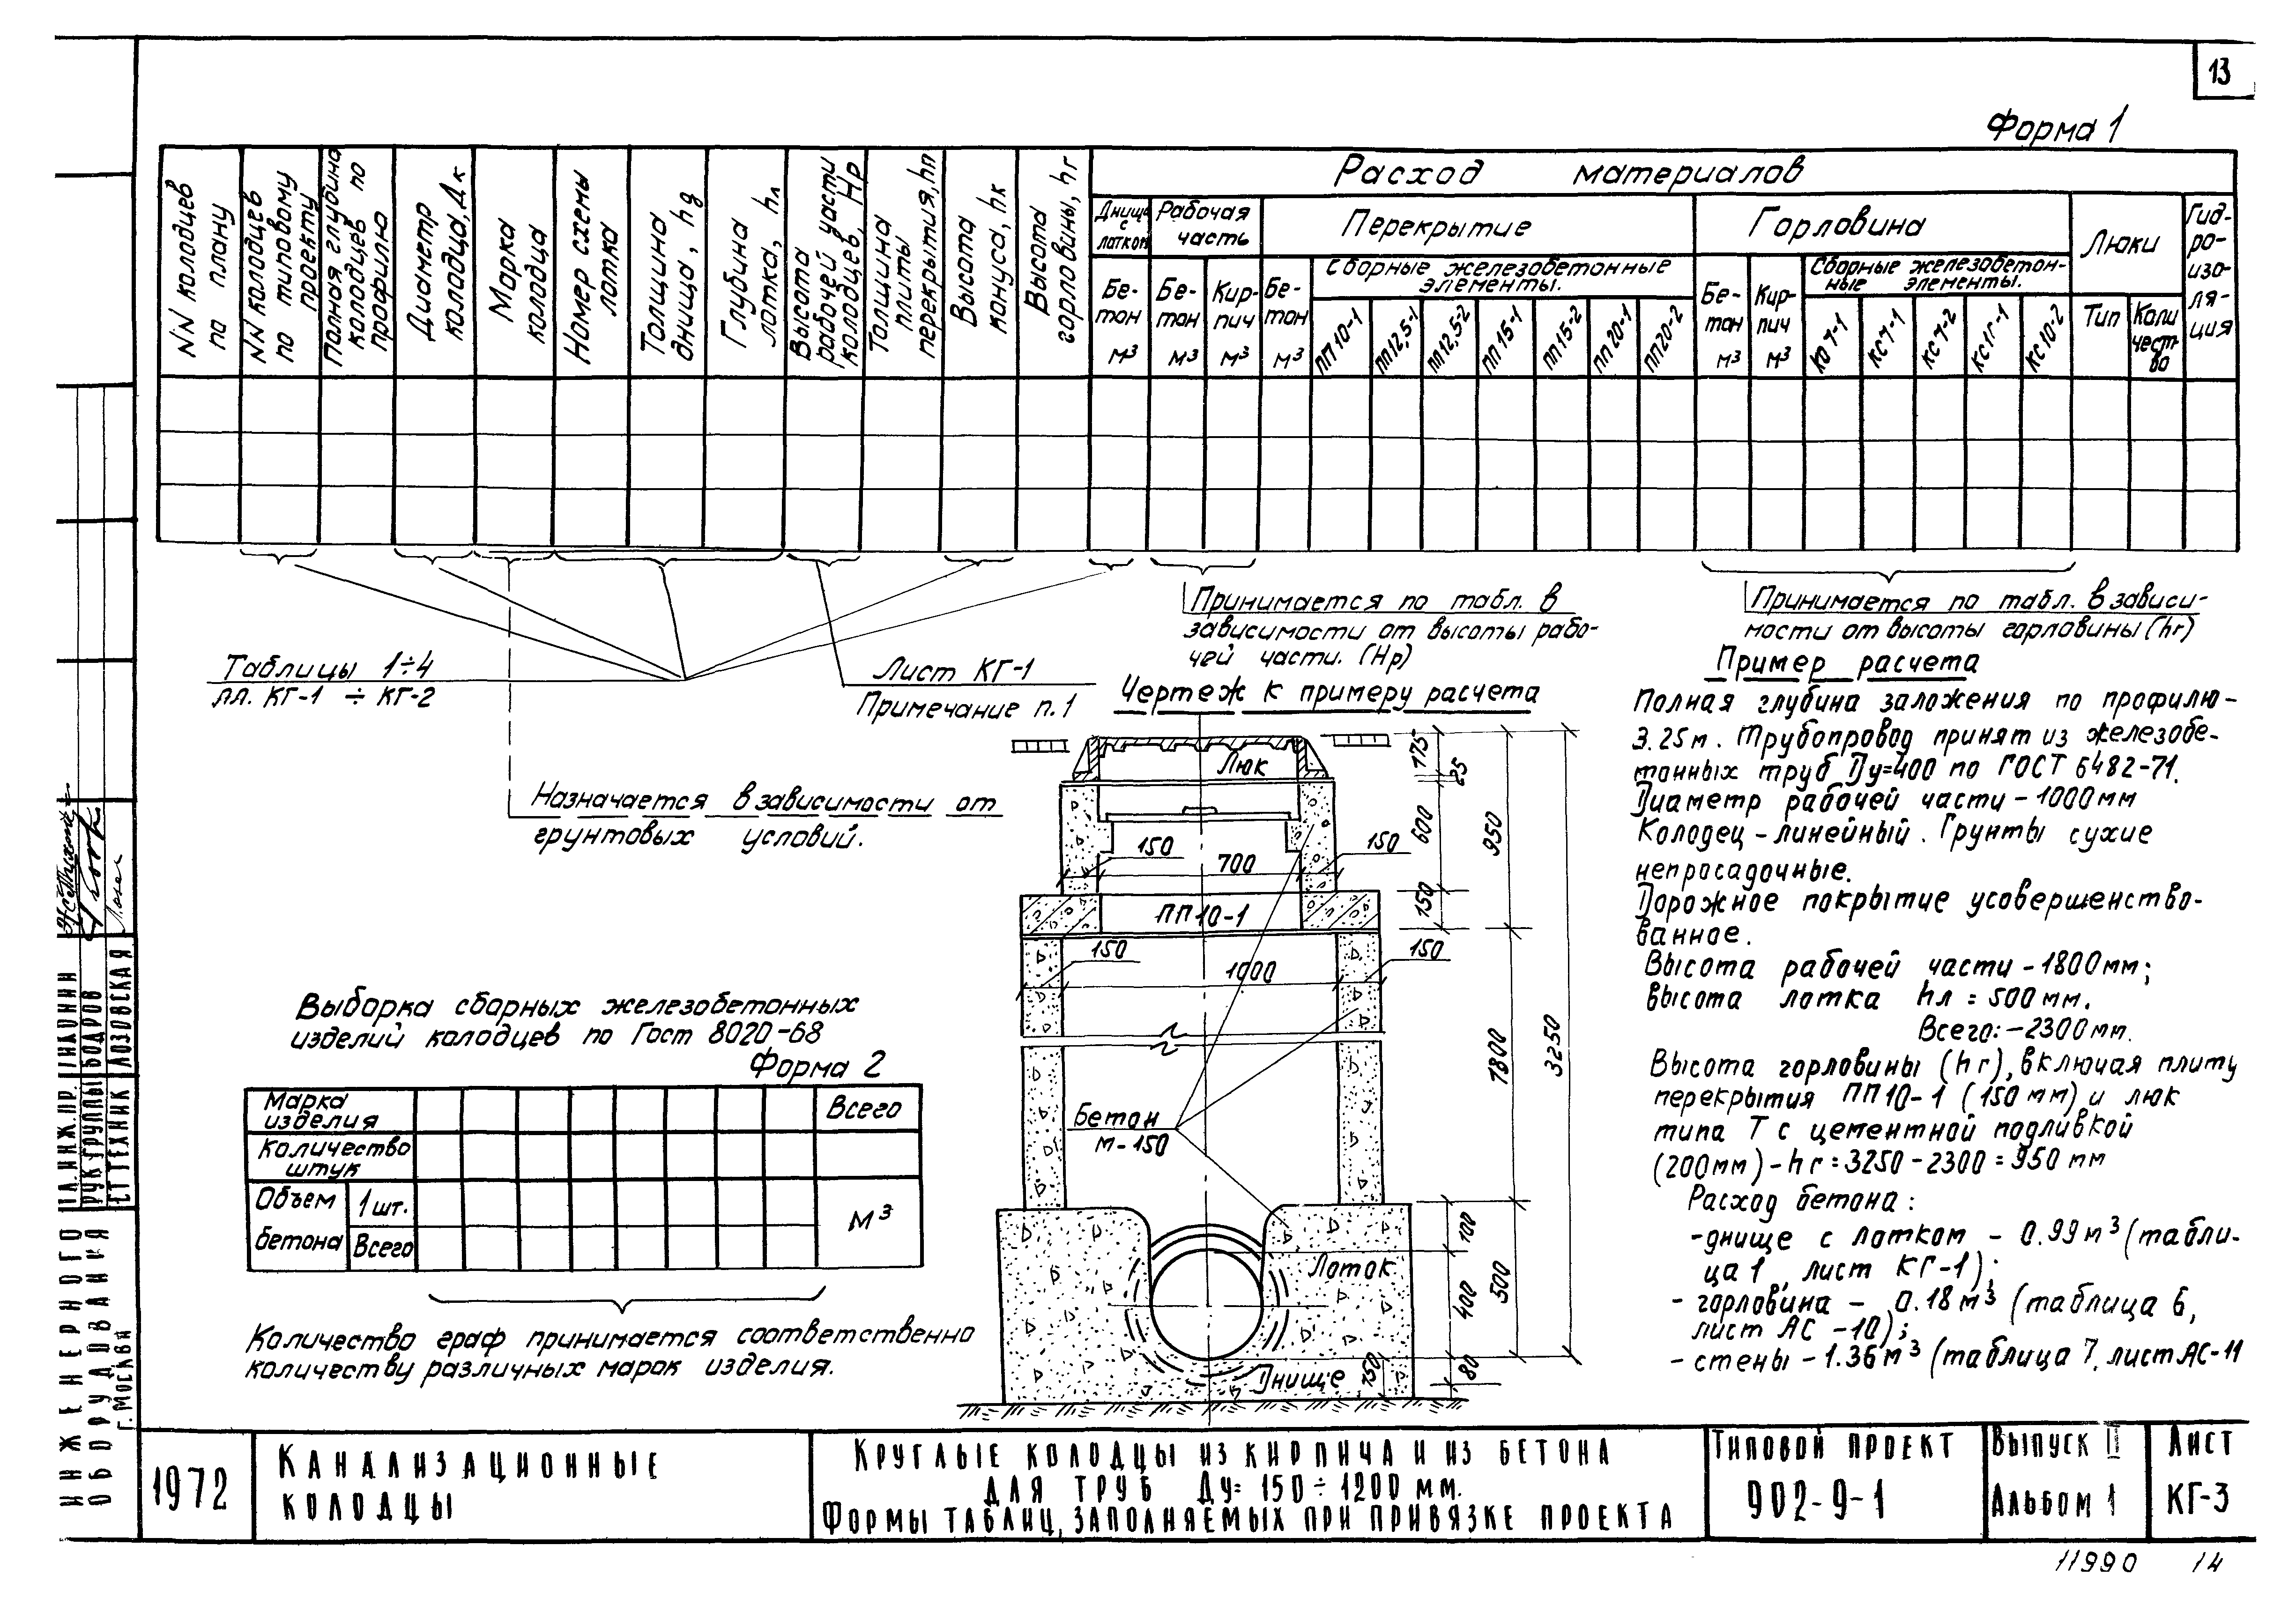 13
Форма 1
NN колодцев по плану
NN колодцев по типовому проекту
Полная глубина колодцев по профилю
Диаметр колодца, Дк
Марка колодца
Номер схемы лотка
Толщина днища, hд
Глубина лотка, hл
Высота рабочей части колодцев, Нр
Толщина плиты перекрытия, hп
Высота конуса, hк
Высота горловины, hг
Расход материалов
Днище с латком
Рабочая часть
Перекрытие
Горловина
Люки
Гид-
ро-
изо-
ля-
ция
Бе-
тон
м³
Бе-
тон
м³
Кир-
пич
м³
Бе-
тон
м³
Сборные железобетонные
элементы.
ПП10-1
ПП12,5-1
ПП12,5-2
ПП15-1
ПП15-2
ПП20-1
ПП20-2
Бе-
тон
м³
Кир-
пич
м³
Сборные железобетон-
ные элементы.
КО 7-1
КС7-1
КС 7-2
КС1Г-1
КС10-2
Тип
Коли
чест-
во
Таблицы 1÷4
лл. КГ-1 ÷ КГ-2
Лист КГ-1
Примечание п.1
Назначается в зависимости от
грунтовых условий.
Принимается по табл. в
зависимости от высоты рабо-
чей части. (Нр)
Принимается по табл. в зависи-
мости от высоты горловины (hг)
Чертеж к примеру расчета
Люк
175
25
600
950
150
700
150
150
ПП10-1
150
1000
150
1800
3250
Бетон
М-150
100
400
500
80
150
Лоток
Днище
Выборка сборных железобетонных
изделий колодцев по Гост 8020-68
Форма 2
Марка
изделия
Всего
Количество
штук
Объем
бетона
1 шт.
Всего
м³
Количество граф принимается соответственно
количеству различных марок изделия.
Пример расчета
Полная глубина заложения по профилю-
3.25м. Трубопровод принят из железобе-
тонных труб Ду=400 по ГОСТ 6482-71.
Диаметр рабочей части - 1000мм
Колодец - линейный. Грунты сухие
непросадочные.
Дорожное покрытие усовершенство-
ванное.
Высота рабочей части - 1800мм;
высота лотка hл = 500мм.
Всего: - 2300мм.
Высота горловины (hг), включая плиту
перекрытия ПП10-1 (150мм) и люк
типа Т с цементной подливкой
(200мм) - hг = 3250 - 2300 = 950 мм
Расход бетона:
- днище с лотком - 0.99м³ (табли-
ца 1, лист КГ-1);
- горловина - 0.18м³ (таблица 6,
лист АС-10);
- стены - 1.36м³ (таблица 7, лист АС-11
ГЛ.ИНЖ.ПР.
РУК.ГРУППЫ БОДРОВ
СТ ТЕХНИК ЛОЗОВСКАЯ
ИНЖЕНЕРНОГО
ОБОРУДОВАНИЯ
г. Москва
1972
Канализационные
колодцы
Круглые колодцы из кирпича и из бетона
для труб Ду= 150÷1200 мм.
Формы таблиц, заполняемых при привязке проекта
Типовой проект
902-9-1
Выпуск II
Альбом 1
Лист
КГ-3
11990 14